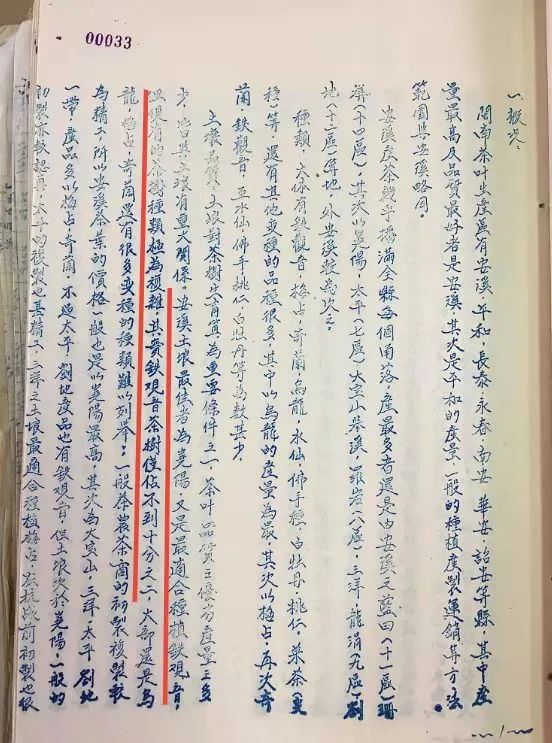 00033
一、概况：
闽南茶叶生产区有安溪、平和、長泰、永春、南安、華安、詔安等縣，其中產
量最高及品質最好者是安溪，其次是平和的產量，一般的種植廣製運銷等方法
範圍與安溪略同。
安溪產茶幾乎楊滿全縣每個角落，產最多者還是由安溪之藍田（十一區）珊
屏（十四區），其次以堯陽、太平（七區）大宝山
羅岩（八區），三洋，龍涓（九區）劉
地（十二區）等地，外安溪較為次之。
種類，大体有鉄觀音，梅占，奇蘭，烏龍，水仙，佛手種，白牡丹，桃仁，菜茶（变
種）等，還有其他变種的品種很多，其中以烏龍的產量為最，其次以梅占，再次奇
蘭，鉄觀音，至水仙佛手桃仁白牡丹等為数甚少。
土壤品質，土壤對茶樹生育質為重要條件之一，茶叶品質之優劣產量之多
少，皆與土壤有重大關係，安溪土壤最佳者為堯陽，又是最適合種植鉄观音，
但現有的茶樹種類極為複雜，其實鉄观音茶樹僅佔不到十分之二，大部還是烏
龍，梅占，奇蘭還有很多变種的種類難以列举，一般茶農茶商的初製複製較
為精工，所以安溪茶葉的價格一般也是以堯陽最高，其次為大宝山，三洋，太平，劉地
一帶，產品多以梅占，奇蘭，不过太平，劉地產品也有鉄观音，但土壤次於堯陽，一般的
初製亦較認真，太平的複製也甚精工，三洋之土壤最適合種植梅占，在抗战前初製也很
1